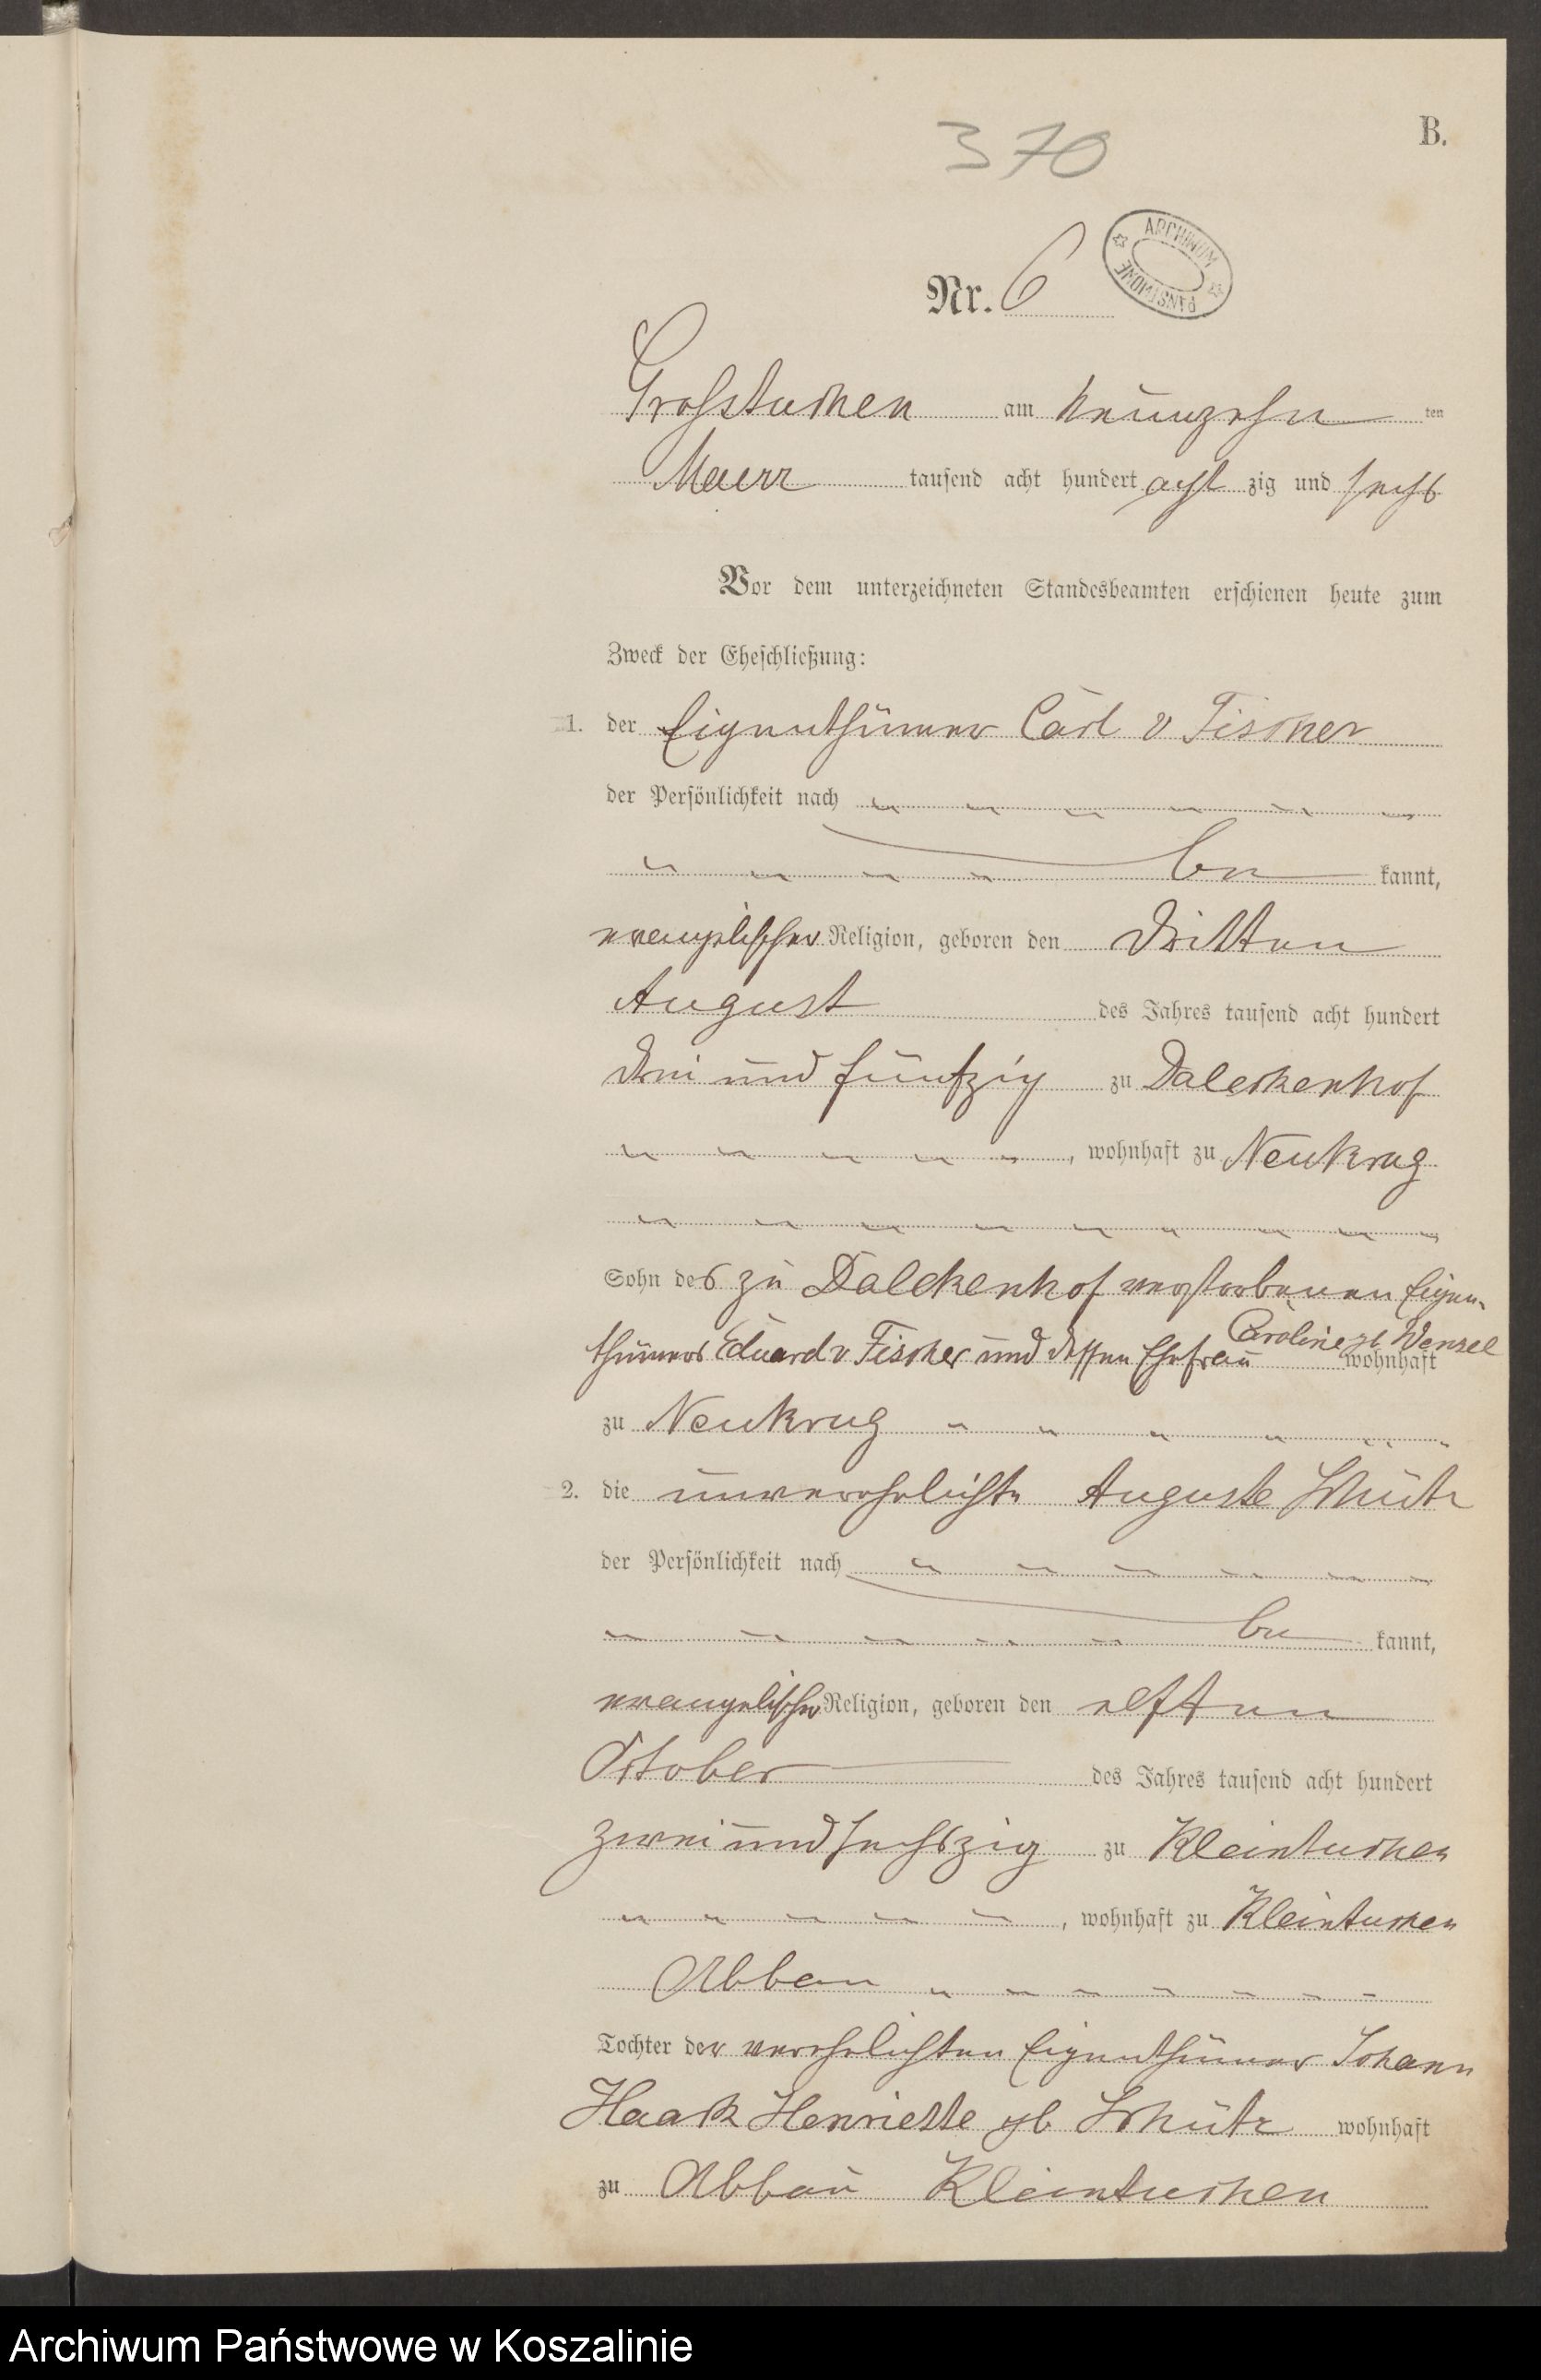 B.
370
Nr. 6
ARCHIWUM PAŃSTWOWE
Grosstuchen am neunzehn ten
Maerz tausend acht hundert acht zig und sechs
Vor dem unterzeichneten Standesbeamten erschienen heute zum
Zweck der Eheschließung:
1. der Eigenthümer Carl v Fischer
der Persönlichkeit nach
be kannt,
evangelischer Religion, geboren den dritten
August des Jahres tausend acht hundert
drei und fünfzig zu Daleckenhof
, wohnhaft zu Neukrug
Sohn des zu Dalckenhof verstorbenen Eigen-
thümers Eduard v Fischer und dessen Ehefrau Caroline gb Wenzel wohnhaft
zu Neukrug
2. die unverehelichte Auguste Schütz
der Persönlichkeit nach
be kannt,
evangelischer Religion, geboren den elften
October des Jahres tausend acht hundert
zwei und sechszig zu Kleintuchen
, wohnhaft zu Kleintuchen
Abbau
Tochter der verehelichten Eigenthümer Johann
Haack Henriette gb Schütz wohnhaft
zu Abbau Kleintuchen
Archiwum Państwowe w Koszalinie